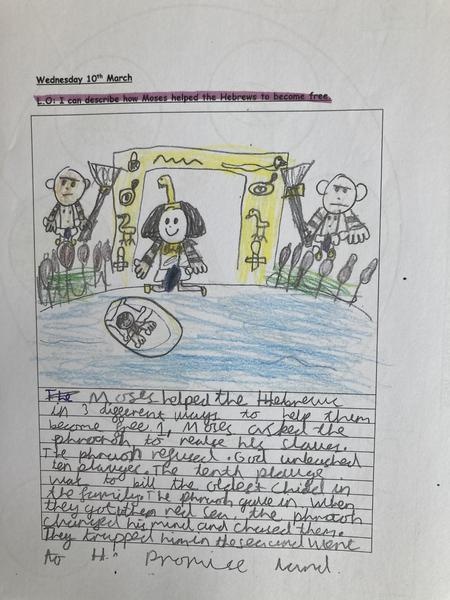 Wednesday 10th March
L.O: I can describe how Moses helped the Hebrews to become free.
The Moses helped the Hebrews
in 3 different ways to help them
become free 1, Moses asked the
phroaoh to realse his slaves.
The phraoh refused. God unleashed
ten plauges. The tenth plauge
was to kill the oldest child in
the family. The phraoh gave in. When
they got them red sea the phraoh
changed his mind and chased them.
They trapped him in the sea and went
to the promise land.